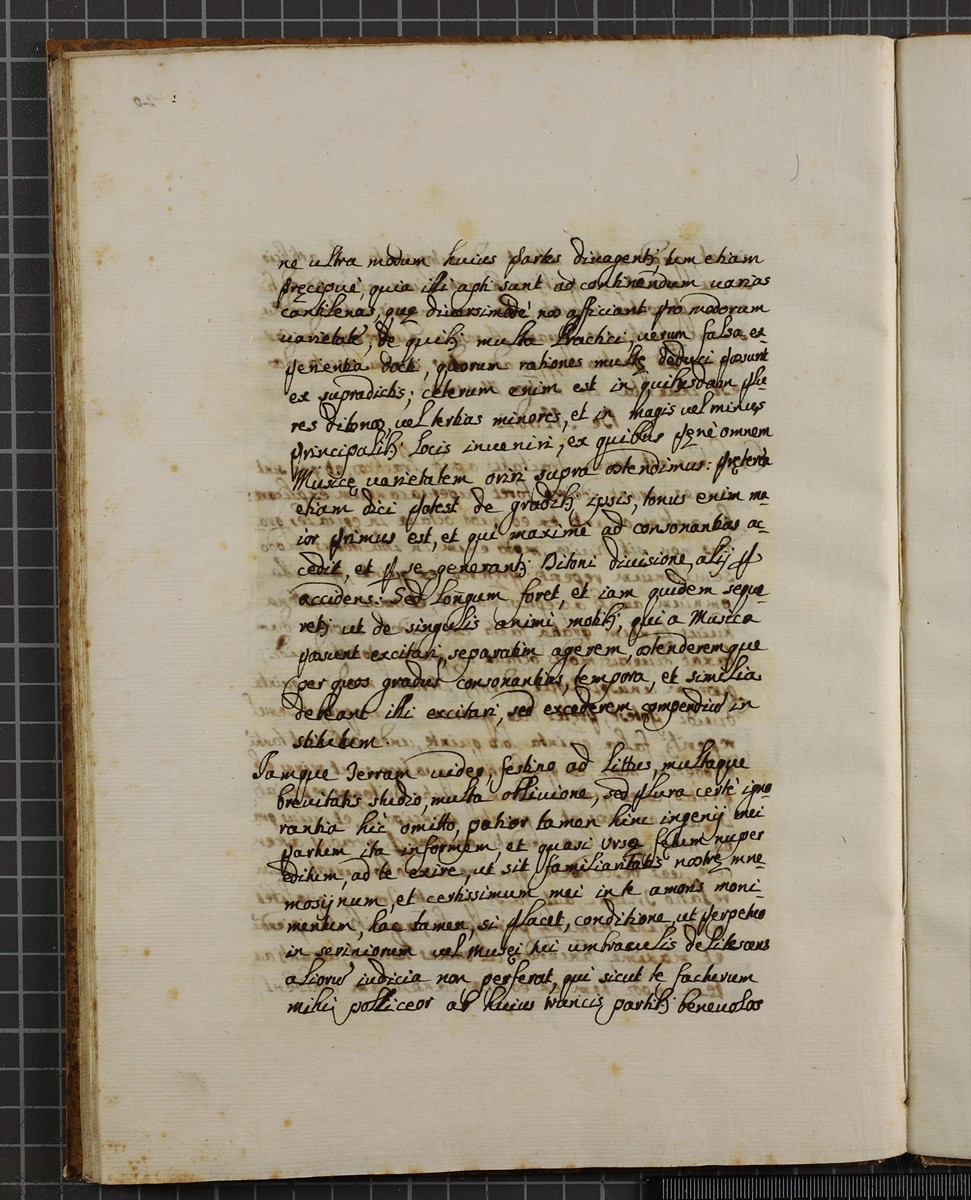 ne ultra modum huius partes diuagentꝫ, tum etiam
pręcipuè, quia illi apti sunt ad continendum uarias
cantilenas, quę diuersimodè nos afficiant pro modorum
uarietate, de quibꝫ multa Practici, uerum falsa ex-
perientia docti, quorum rationes multę deduci possunt
ex supradictis; ceterum enim est in quibusdam plu
res ditonos, uel tertias minores, et in magis uel minus
principalibꝫ locis inueniri, ex quibus penè omnem
Musicę uarietatem oriri supra ostendimus: Pręterea
etiam dici potest de gradibꝫ ipsis, tonus enim ma
ior primus est, et qui maximè ad consonantias ac-
cedit, et p se generantꝫ Ditoni diuisione, alij p
accidens: Sed longum foret, et iam quidem seque-
retꝫ ut de singulis animi motibꝫ, qui a Musica
possunt excitari, separatim agerem, ostenderemque
per quos gradus consonantias, tempora, et similia
debeant illi excitari, sed excederem compendiũ in
stitutum.
Iamque Terram uideo, festino ad littus, multaque
breuitatis studio, multa obliuione, sed plura certè igno
rantia hìc omitto, patior tamen hunc ingenij mei
partum ita informem, et quasi Ursę fętum nuper
editum, ad te exire, ut sit familiaritatis nostrę mne
mosijnum, et certissimum mei in te amoris moni-
mentum, hac tamen, si placet, conditione, ut perpetuo
in scriniorum uel Musęi tui umbraculis delitescens
aliorũ iudicia non perferat, qui sicut te facturum
mihi polliceor ab huius truncis partibꝫ beneuolos